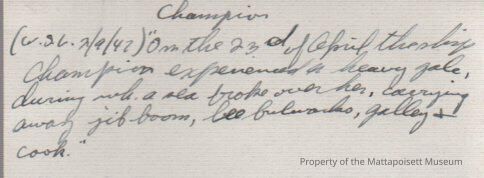 Champion
(W.S.L. 7/9/42) "On the 23rd of April the ship
Champion experienced a heavy gale,
during wh. a sea broke over her, carrying
away jib boom, lee bulwarks, galley &
cook."
Property of the Mattapoisett Museum